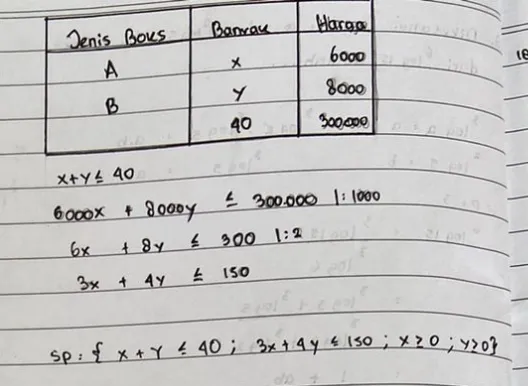 Jenis Boks Banyak Harga
A x 6000
B y 8000
40 300.000
x+y ≤ 40
6000x + 8000y ≤ 300.000 |: 1000
6x + 8y ≤ 300 |: 2
3x + 4y ≤ 150
SP : { x + y ≤ 40 ; 3x + 4y ≤ 150 ; x ≥ 0 ; y ≥ 0}